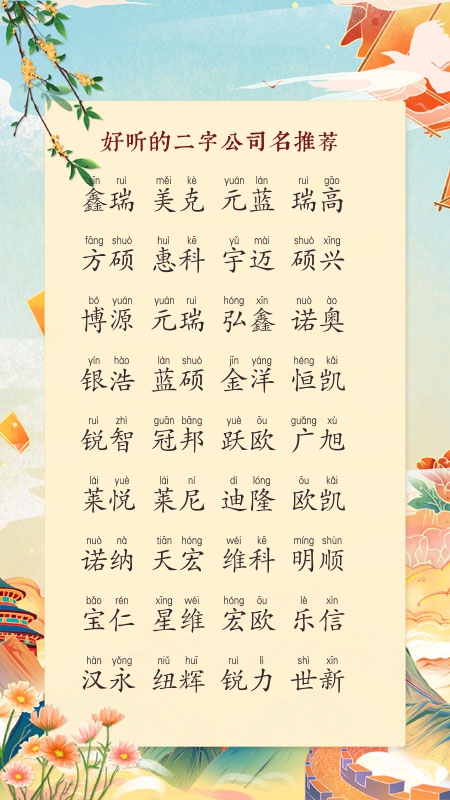 好听的二字公司名推荐
xīn ruì měi kè yuán lán ruì gāo
鑫瑞 美克 元蓝 瑞高
fāng shuò huì kē yǔ mài shuò xīng
方硕 惠科 宇迈 硕兴
bó yuán yuán ruì hóng xīn nuò ào
博源 元瑞 弘鑫 诺奥
yín hào lán shuò jīn yáng héng kǎi
银浩 蓝硕 金洋 恒凯
ruì zhì guān bāng yuè ōu guǎng xù
锐智 冠邦 跃欧 广旭
lái yuè lái ní dí lóng ōu kǎi
莱悦 莱尼 迪隆 欧凯
nuò nà tiān hóng wéi kē míng shùn
诺纳 天宏 维科 明顺
bǎo rén xīng wéi hóng ōu lè xìn
宝仁 星维 宏欧 乐信
hàn yǒng niǔ huī ruì lì shì xīn
汉永 纽辉 锐力 世新